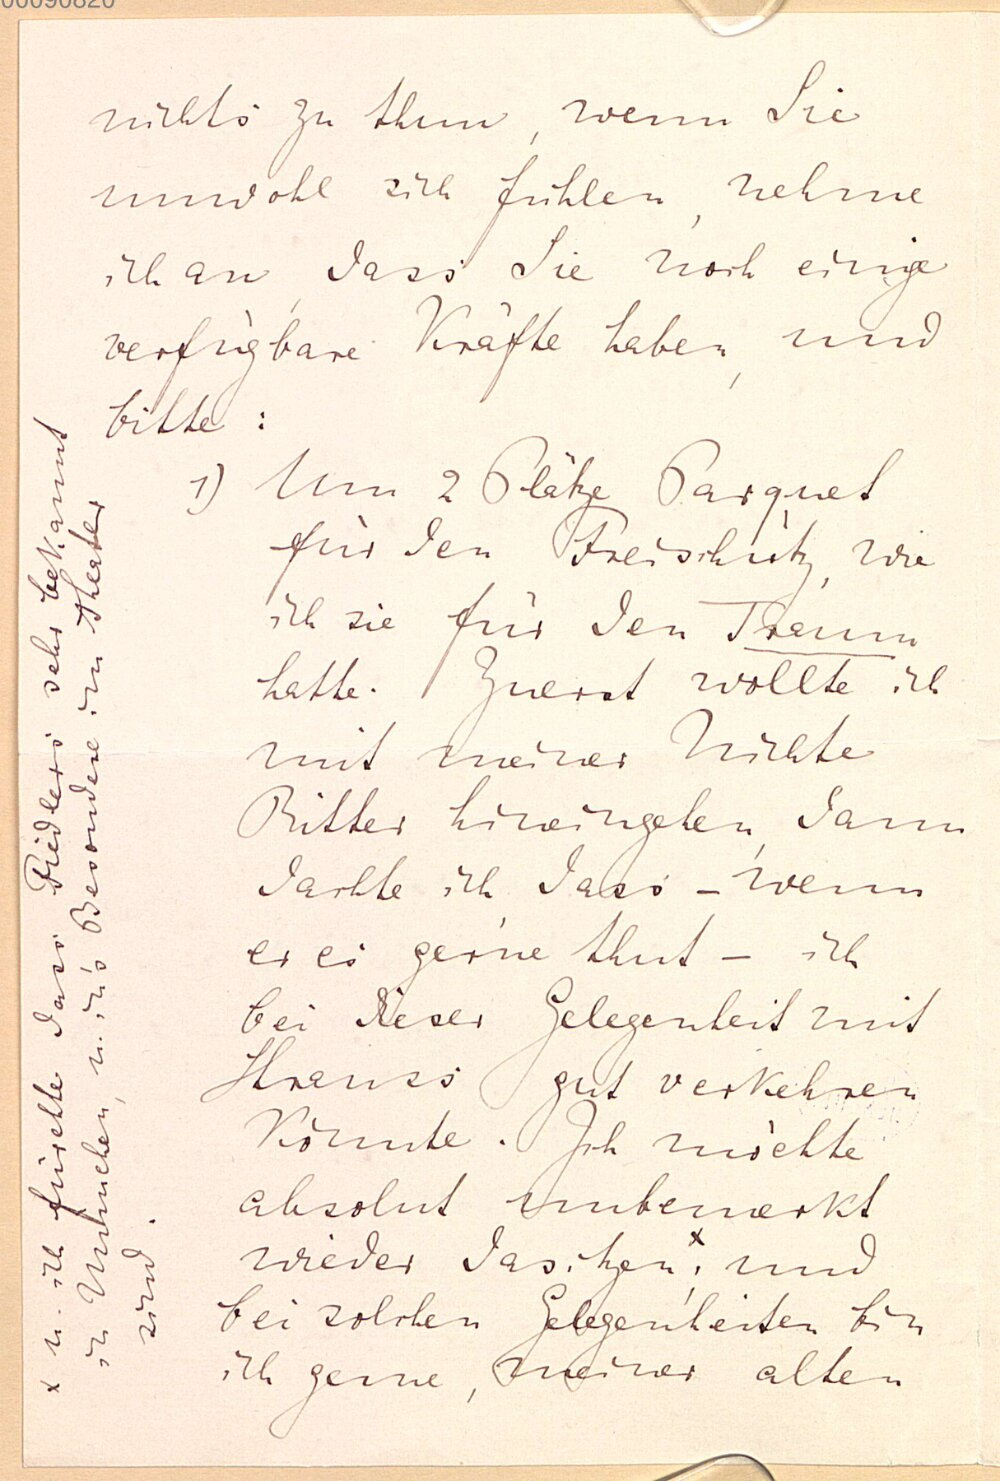 00090820
nichts zu thun, wenn Sie
unwohl sich fühlen, nehme
ich an, dass Sie noch einige
verfügbare Kräfte haben, und
bitte:
1) Um 2 Plätze Parquet
für den Freischütz, wie
ich sie für den Traum
hatte. Zuerst wollte ich
mit meiner Nichte
Ritter hineingehen, dann
dachte ich dass – wenn
er es gerne thut – ich
bei dieser Gelegenheit mit
Strauss gut verkehren
könnte. Ich möchte
absolut unbemerkt
wieder dasitzen,x und
bei solchen Gelegenheiten bin
ich gerne, meiner alten
x u. ich fürchte dass Fiedlers sehr bekannt
in München, u. in's Besondere im Theater
sind.